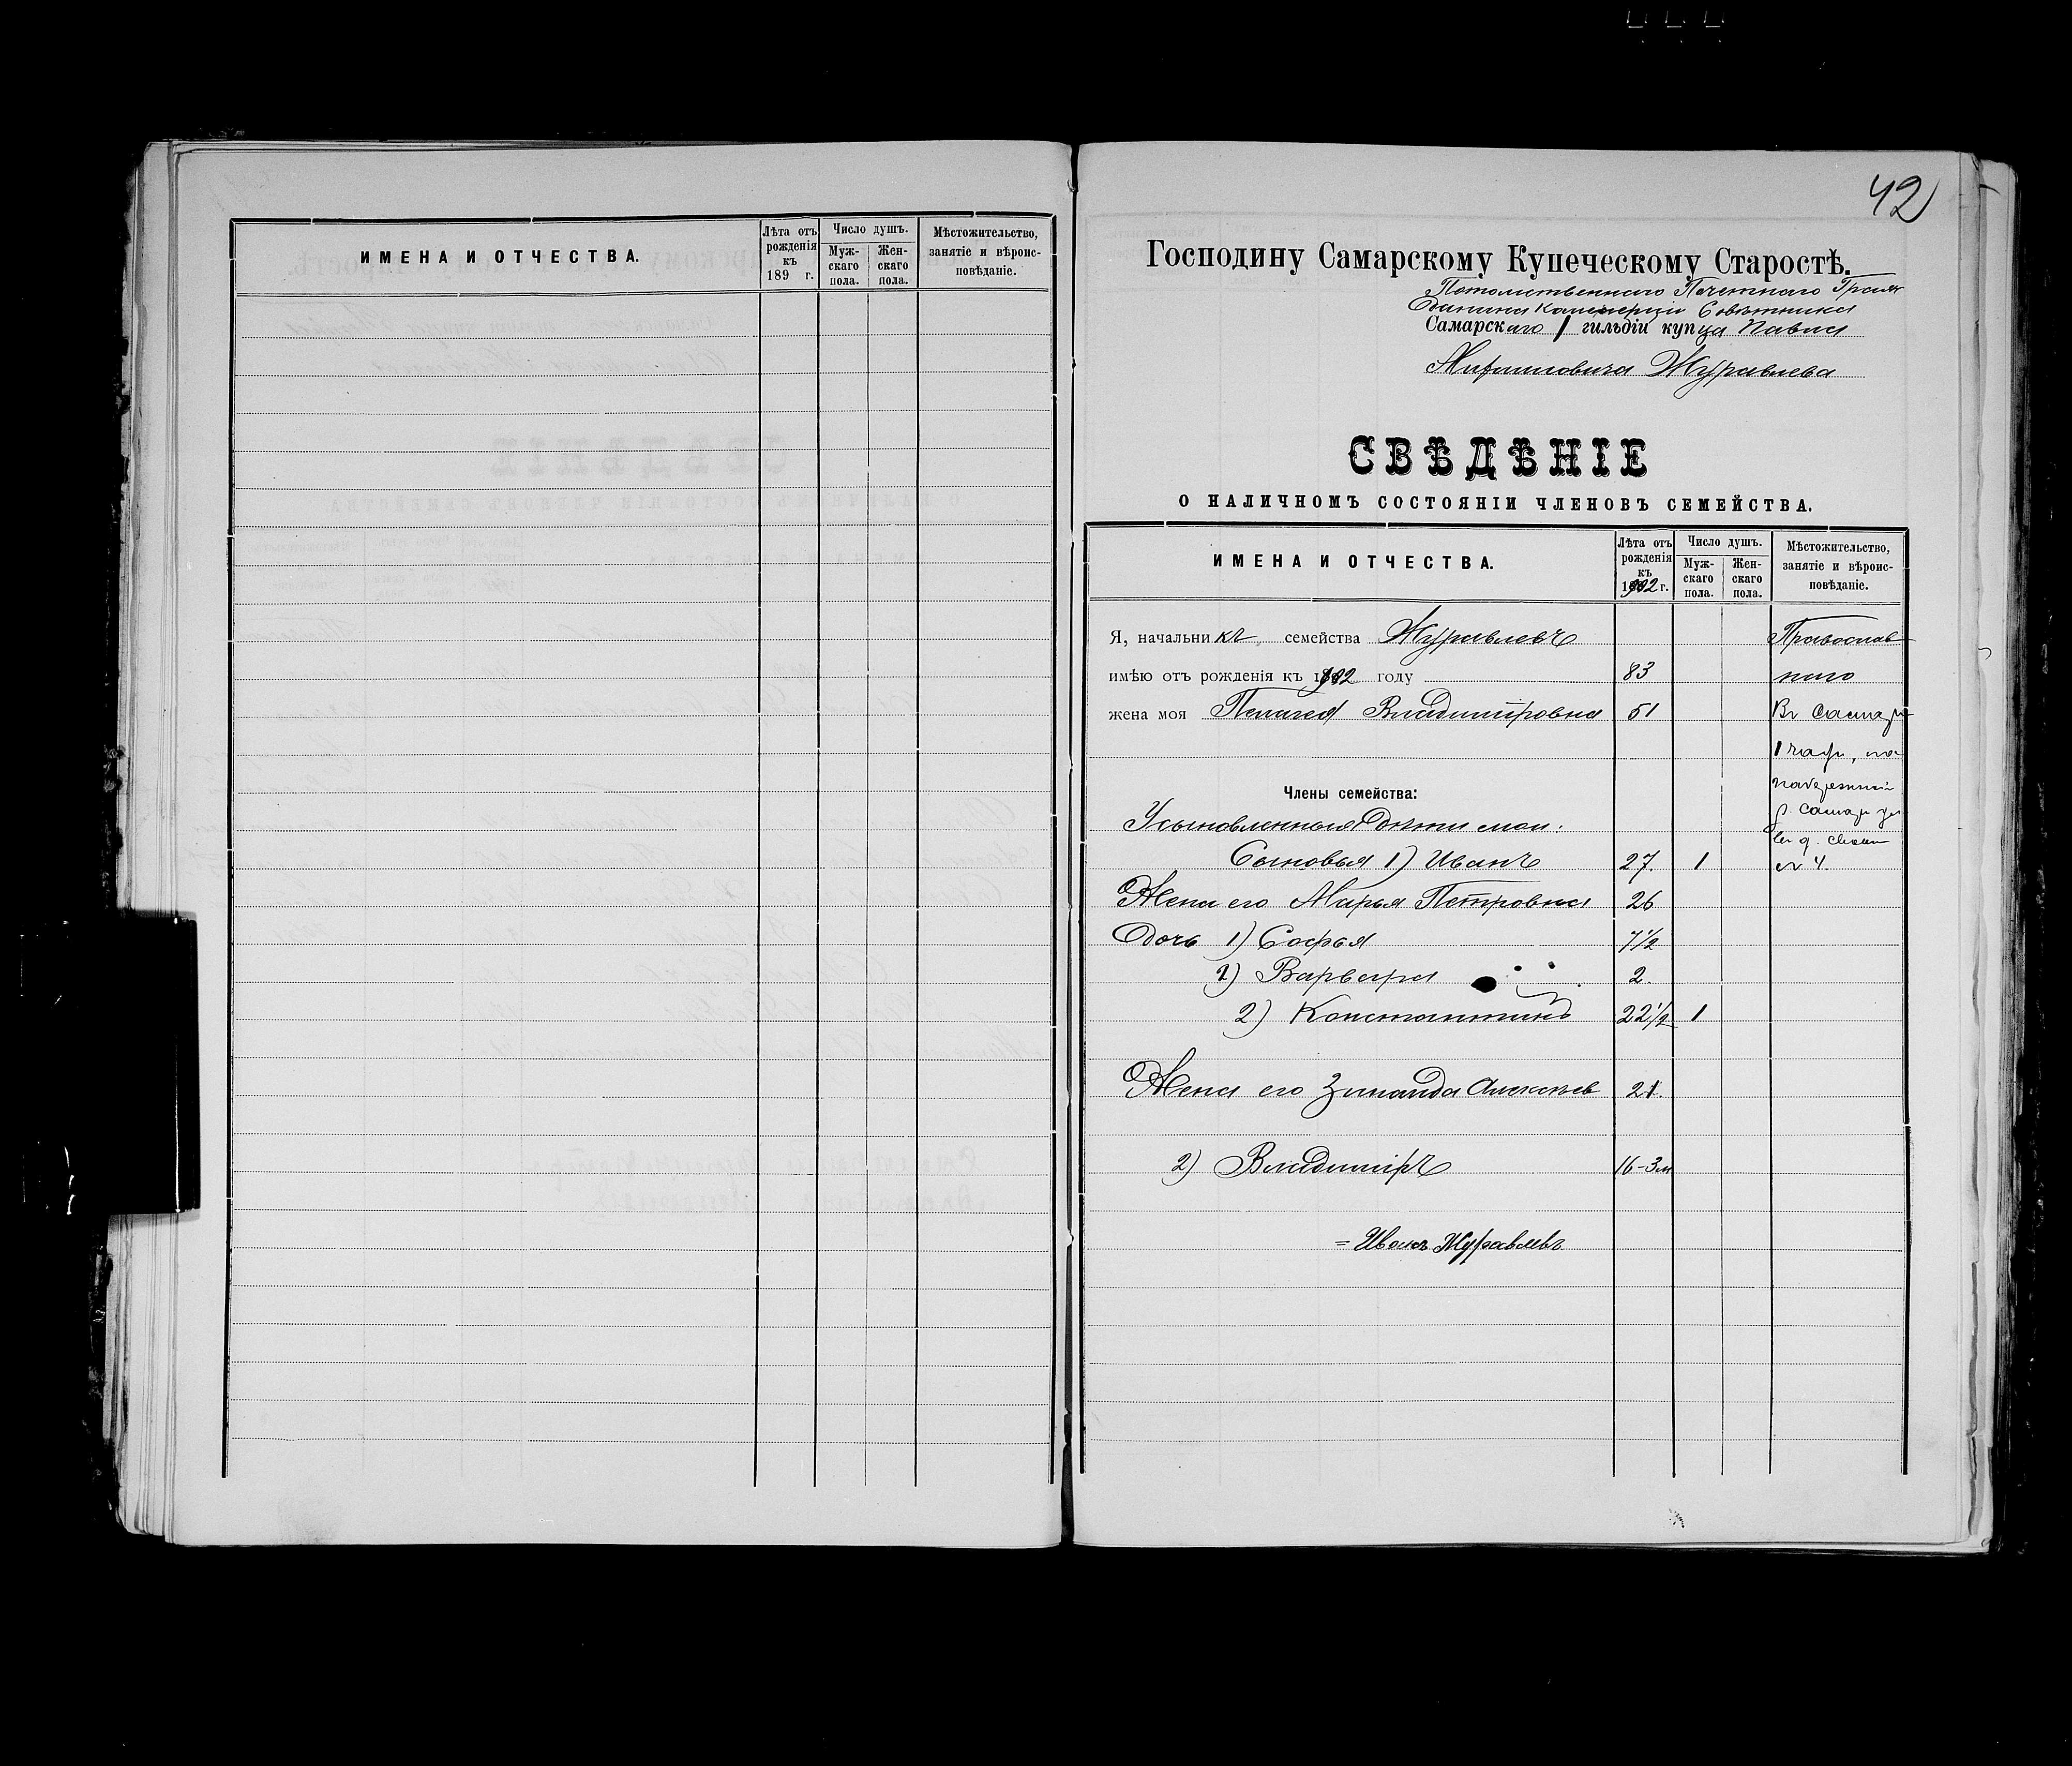 ИМЕНА И ОТЧЕСТВА.
Лѣта отъ рожденія къ 189 г.
Число душъ.
Муж-скаго пола.
Жен-скаго пола.
Мѣстожительство, занятіе и вѣроис-повѣданіе.
42
Господину Самарскому Купеческому Старостѣ.
Потомственнаго Почетнаго Граж
данина Коммерціи Совѣтника
Самарскаго 1 гильдіи купца Павла
Журавлева
СВѢДѢНІЕ
О НАЛИЧНОМЪ СОСТОЯНІИ ЧЛЕНОВЪ СЕМЕЙСТВА.
ИМЕНА И ОТЧЕСТВА.
Лѣта отъ рожденія къ 1902 г.
Число душъ.
Муж-скаго пола.
Жен-скаго пола.
Мѣстожительство, занятіе и вѣроис-повѣданіе.
Я, начальникъ семейства Журавлевъ Православ
имѣю отъ рожденія къ 1902 году 83 наго
жена моя Пелагея Владиміровна 51 Въ Самар
1 част, на
Члены семейства: набережной
Усыновленныя Дѣти мои: р. Самар
Сыновья 1) Иванъ 27. 1 № 4.
Жена его Марья Петровна 26
Дочь 1) Софья 7 1/2
2) Варвара 2.
2) Константинъ 22 1/2 1
Жена его Зинаида Алексѣев 21.
2) Владиміръ 16-3 м
= Иванъ Журавлевъ